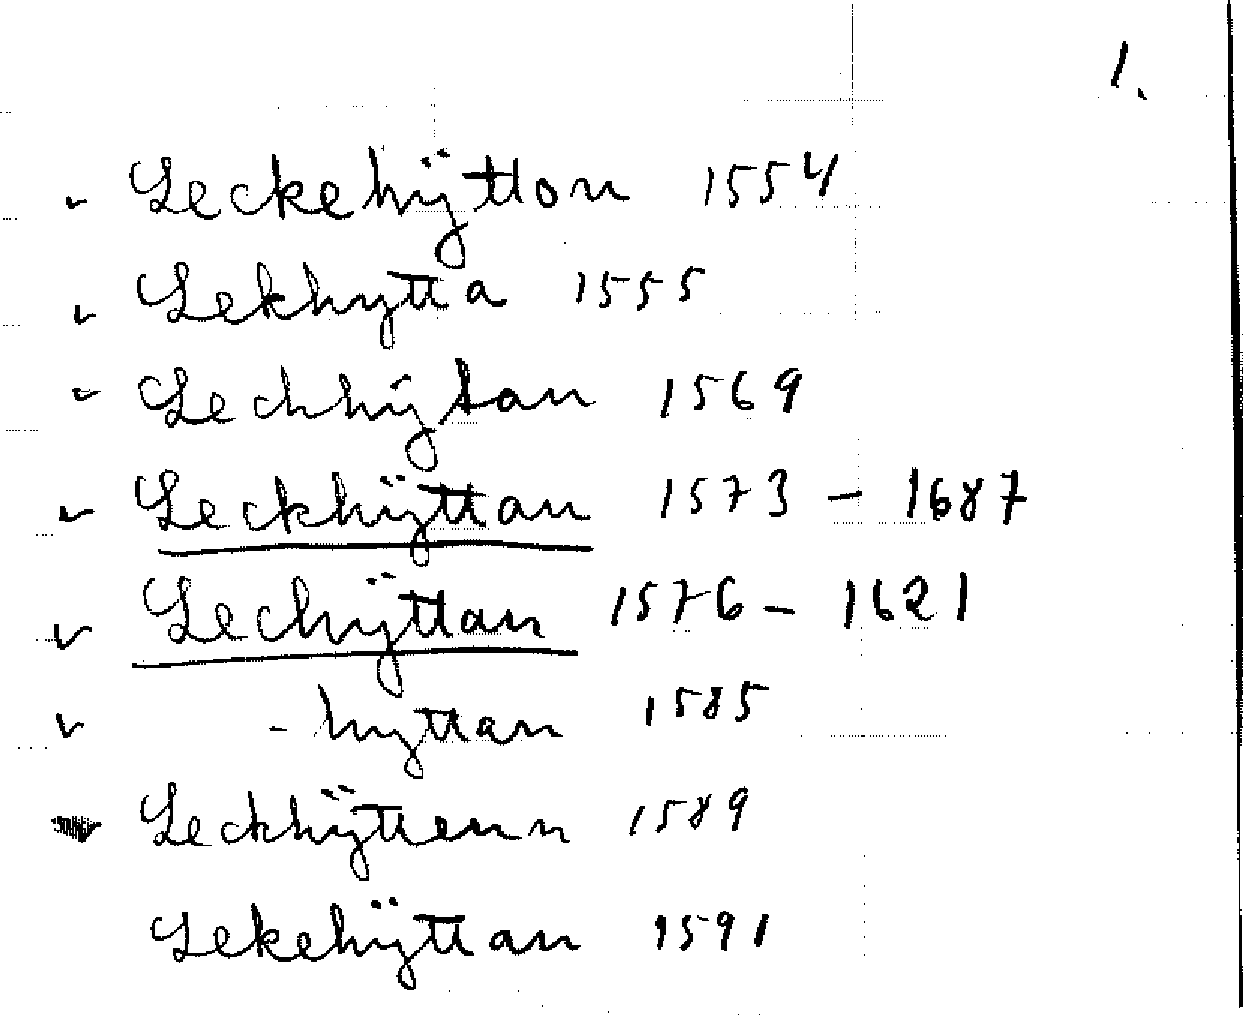 1.
Leckehÿtton 1554
Lekhytta 1555
Lechhÿtan 1569
Leckhÿttan 1573 – 1687
Lechÿttan 1576 – 1621
- hyttan 1585
Leckhÿttenn 1589
Lekehÿttan 1591